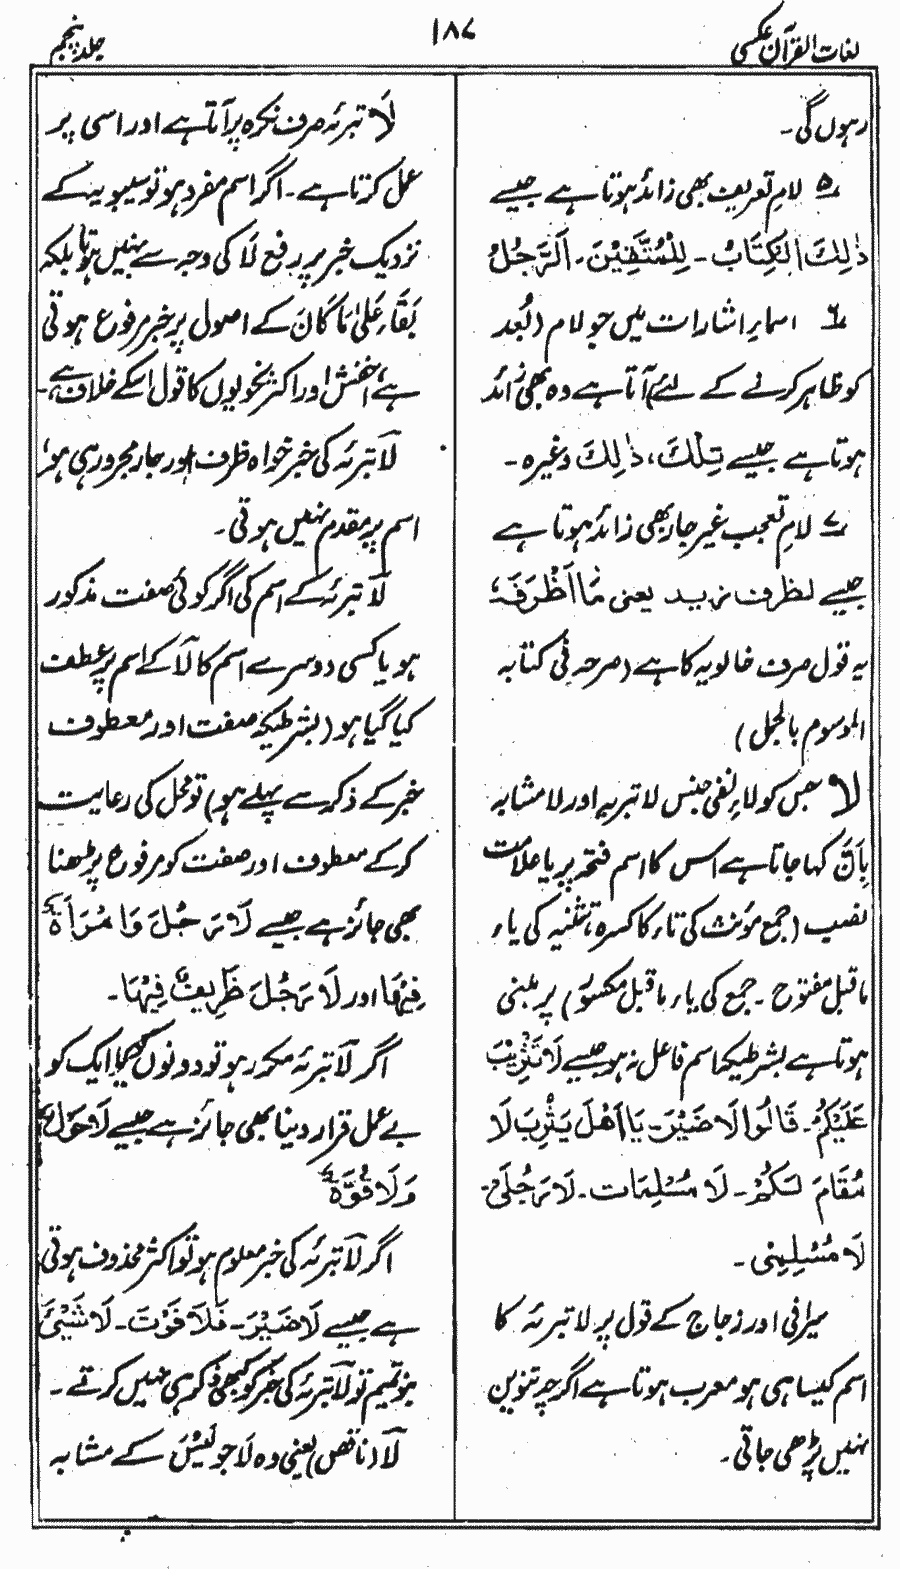 لغات القرآن عکسی
۱۸۷
جلد پنجم
رہوں گی۔
۵ لامِ تعریف بھی زائد ہوتا ہے جیسے
ذٰلِكَ الْكِتَابُ۔ لِلْمُتَّقِيْنَ۔ اَلرَّجُلُ
۶ اسماءِ اشارات میں جو لام (بُعد
کو ظاہر کرنے کے لئے) آتا ہے وہ بھی زائد
ہوتا ہے جیسے تِلْكَ، ذٰلِكَ وغیرہ۔
۷ لامِ تعجب غیر جار بھی زائد ہوتا ہے
جیسے لظرف زید یعنی مَا اَظْرَفَہٗ
یہ قول صرف خالویہ کا ہے (صرحہ فی کتابہ
الموسوم بالجمل)
لا جس کو لاءِ نفی جنس لا تبریہ اور لا مشابہ
بِاَنَّ کہا جاتا ہے اس کا اسم فتحہ پر یا علامت
نصب (جمع مؤنث کی تاء کا کسرہ، تثنیہ کی یاء
ماقبل مفتوح۔ جمع کی یاء ماقبل مکسور) پر مبنی
ہوتا ہے بشرطیکہ اسم فاعل نہ ہو جیسے لَا تَثْرِيْبَ
عَلَيْكُمْ۔ قَالُوا لَا ضَيْرَ۔ يَا اَهْلَ يَثْرِبَ لَا
مُقَامَ لَكُمْ۔ لَا مُسْلِمَات۔ لَا رَجُلَيْنِ۔
لَا مُسْلِمِيْنَ۔
سیرافی اور زجاج کے قول پر لا تبرئہ کا
اسم کیسا ہی ہو معرب ہوتا ہے اگرچہ تنوین
نہیں پڑھی جاتی۔
لَا تبرئہ صرف نکرہ پر آتا ہے اور اسی پر
عمل کرتا ہے۔ اگر اسم مفرد ہو تو سیبویہ کے
نزدیک خبر پر رفع لَا کی وجہ سے نہیں ہوتا بلکہ
بَقَاء عَلیٰ مَا كَانَ کے اصول پر خبر مرفوع ہوتی
ہے، اخفش اور اکثر نحویوں کا قول اسکے خلاف ہے۔
لَا تبرئہ کی خبر خواہ ظرف اور جار مجرور ہی ہو،
اسم پر مقدم نہیں ہوتی۔
لَا تبرئہ کے اسم کی اگر کوئی صفت مذکور
ہو یا کسی دوسرے اسم کا لَا کے اسم پر عطف
کیا گیا ہو (بشرطیکہ صفت اور معطوف
خبر کے ذکر سے پہلے ہو) تو محل کی رعایت
کرکے معطوف اور صفت کو مرفوع پڑھنا
بھی جائز ہے جیسے لَا رَجُلَ وَامْرَأَةٌ
فِيْهَا اور لَا رَجُلَ ظَرِيْفٌ فِيْهَا۔
اگر لَا تبرئہ مکرر ہو تو دونوں کو یا ایک کو
بے عمل قرار دینا بھی جائز ہے جیسے لَا حَوْلٌ
وَلَا قُوَّةٌ
اگر لَا تبرئہ کی خبر معلوم ہو تو اکثر محذوف ہوتی
ہے جیسے لَا ضَيْرَ۔ فَلَا فَوْتَ۔ لَا شَيْئَ
بنو تمیم تو لَا تبرئہ کی خبر کو کبھی ذکر ہی نہیں کرتے۔
لَا (ناقص) یعنی وہ لَا جو لَيْسَ کے مشابہ